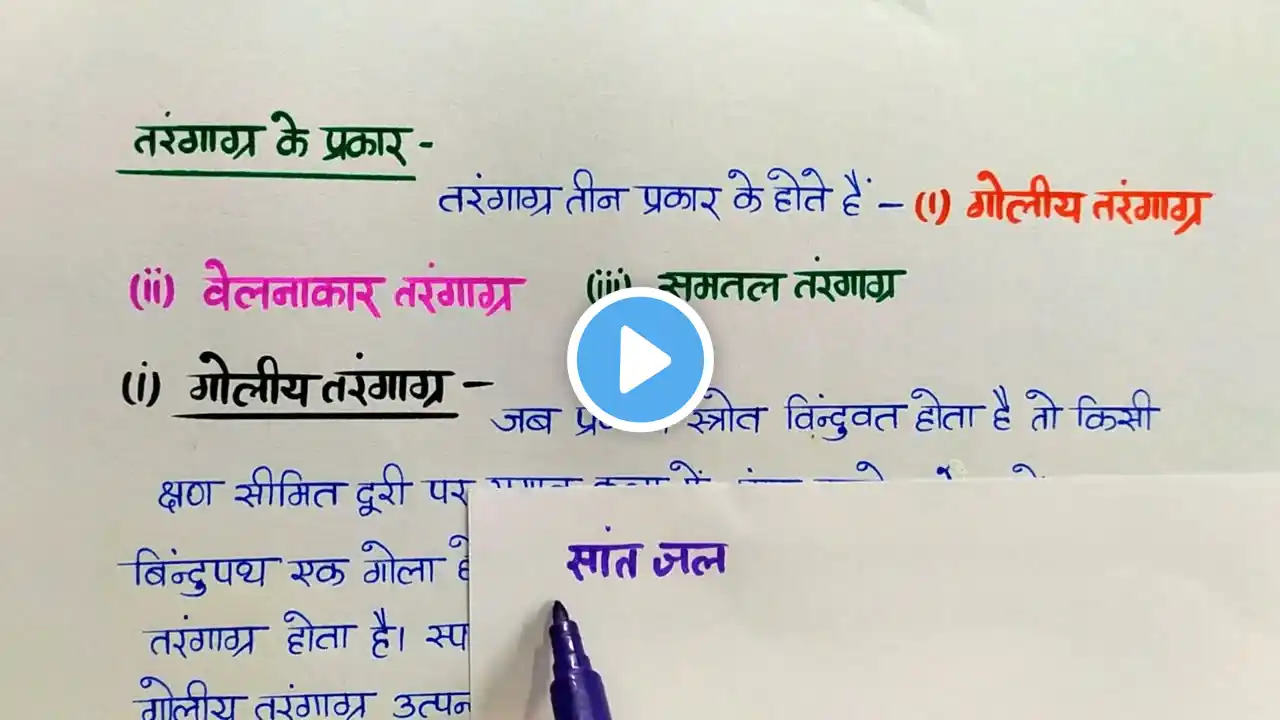 तरंगाग्र के प्रकार -
तरंगाग्र तीन प्रकार के होते हैं - (i) गोलीय तरंगाग्र
(ii) वेलनाकार तरंगाग्र (iii) समतल तरंगाग्र
(i) गोलीय तरंगाग्र -
जब स्त्रोत विन्दुवत होता है तो किसी
क्षण सीमित दूरी पर
बिन्दुपथ एक गोला
तरंगाग्र होता है।
गोलीय तरंगाग्र
सांत जल